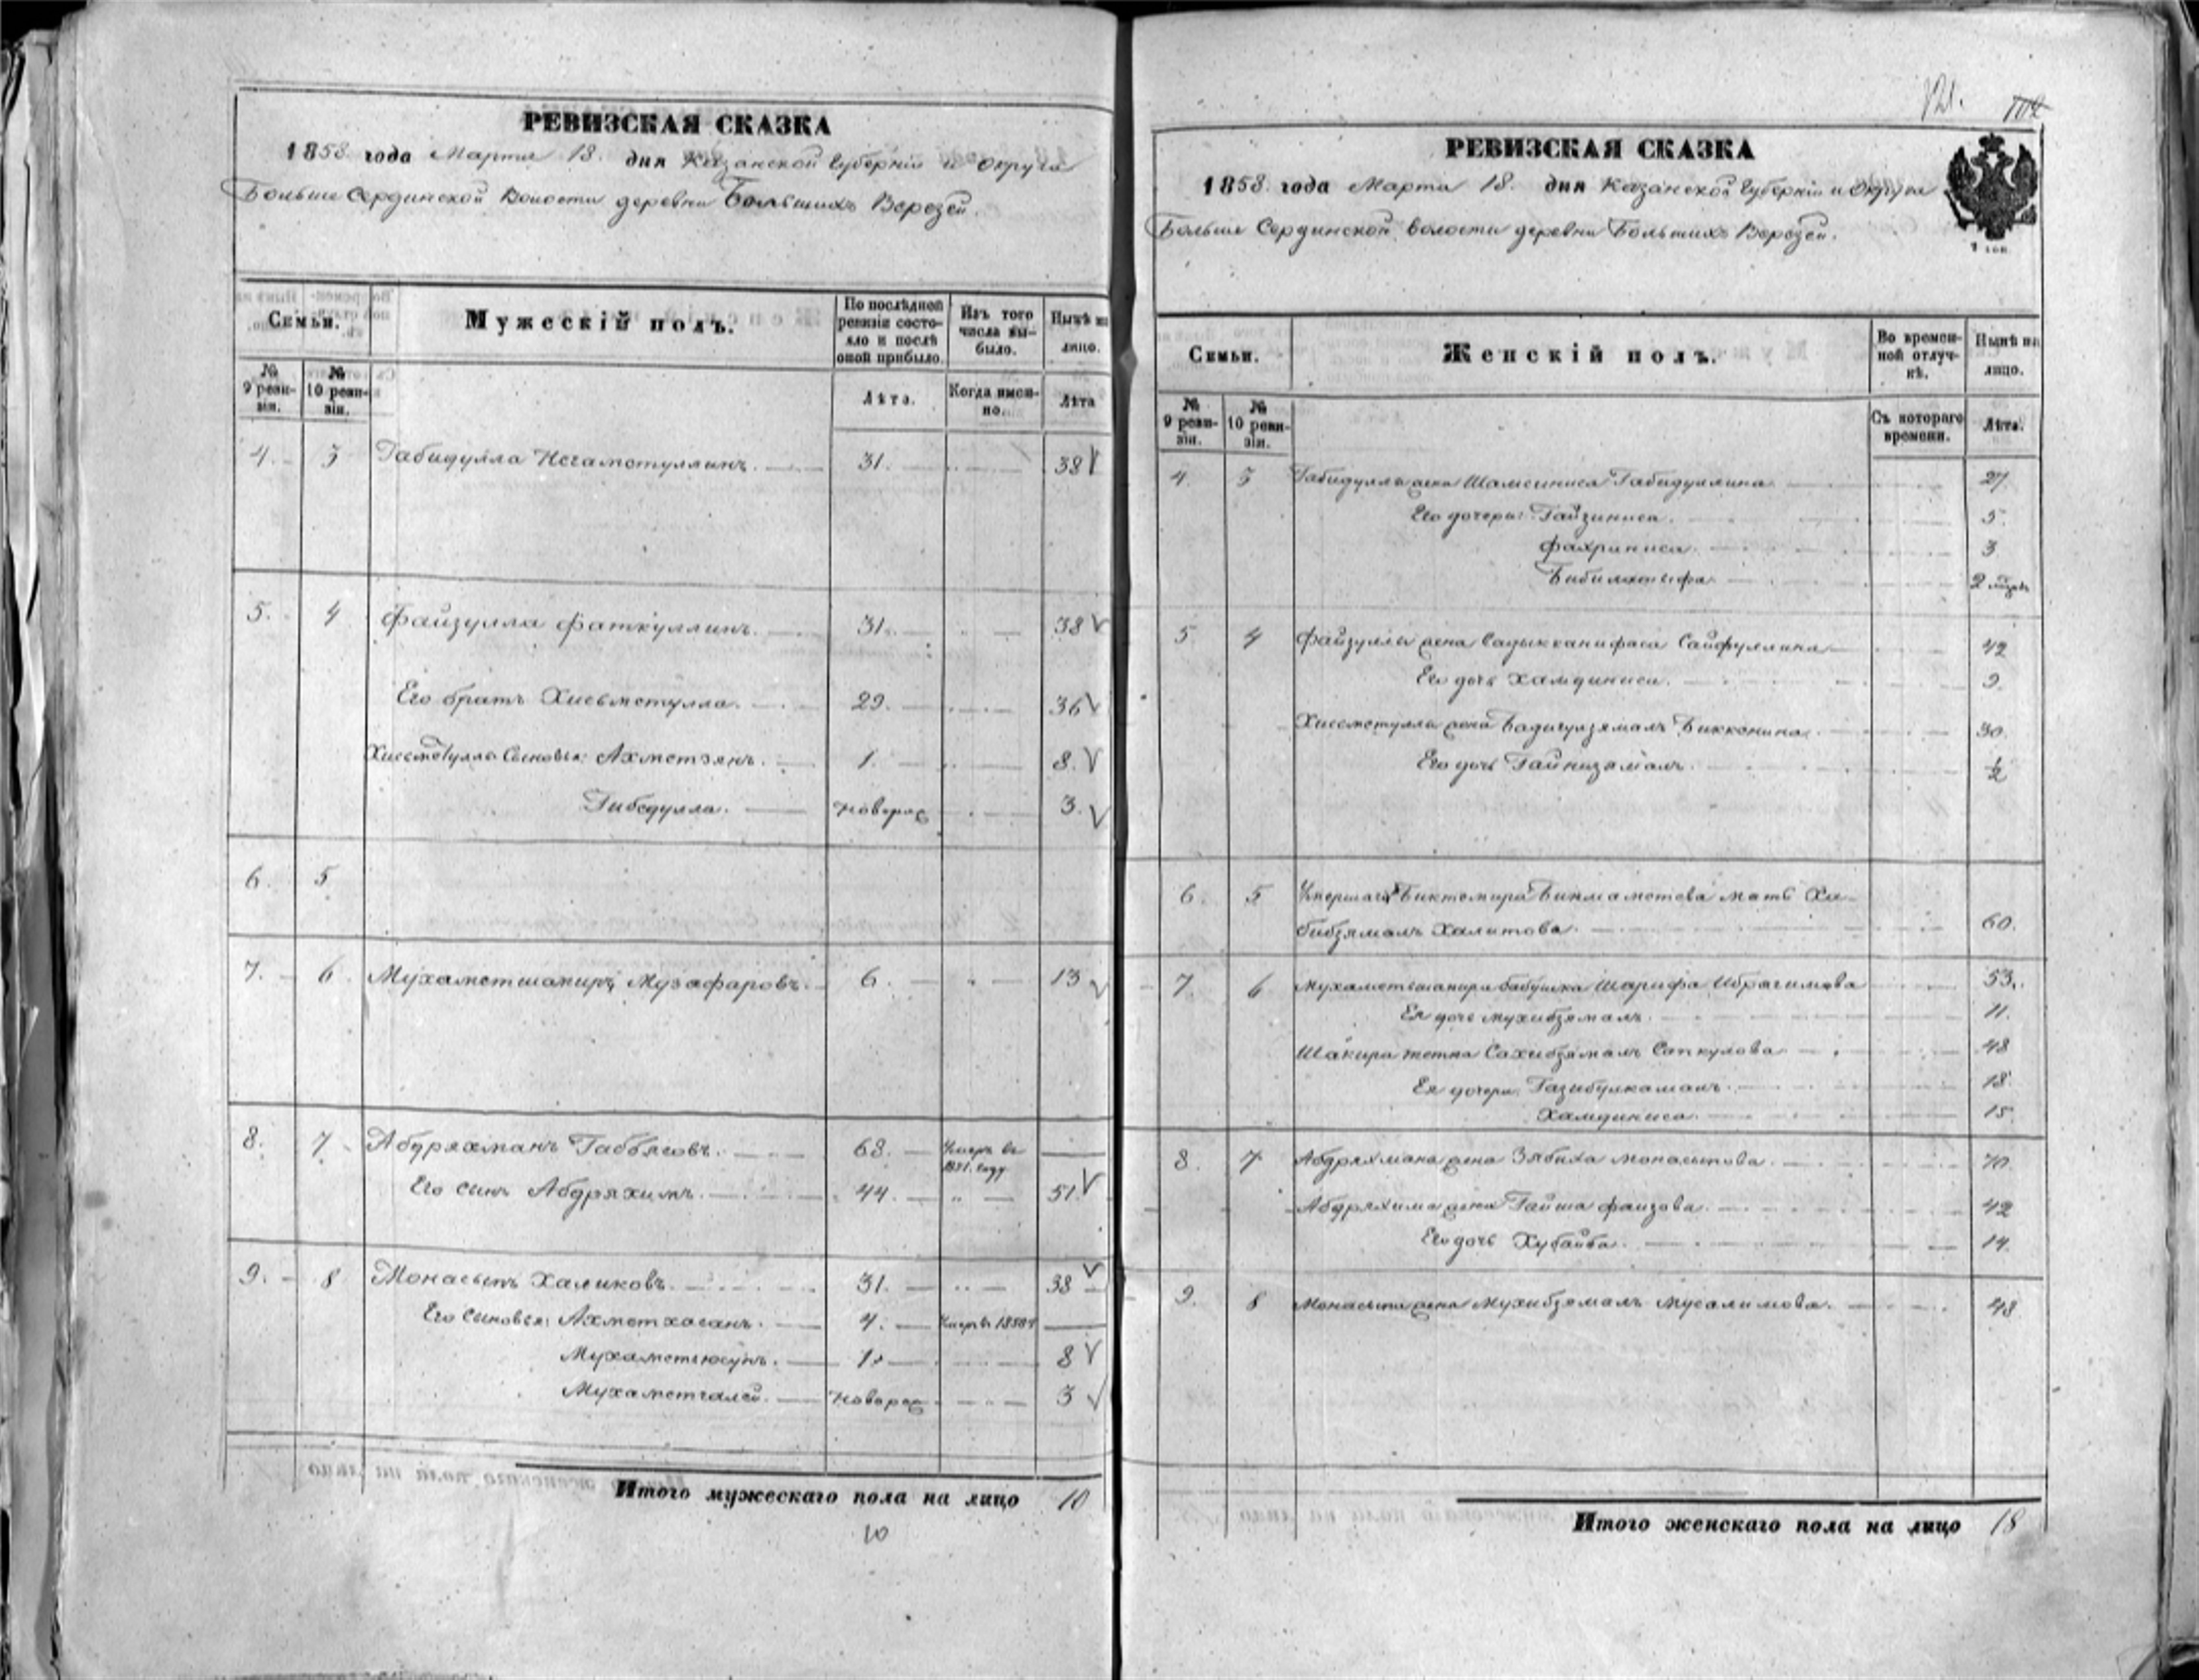 РЕВИЗСКАЯ СКАЗКА
1858 года Марта 18. дня Казанской Губерніи и Округа
Больше Сердинской Волости деревни Большихъ Верезей.
Семьи.
Мужескій полъ.
По послѣдней ревизіи состояло и послѣ оной прибыло.
Изъ того числа выбыло.
Нынѣ на лицо.
№ 9 ревизіи.
№ 10 ревизіи.
Лѣта.
Когда именно.
Лѣта
4. 3 Габидулла Негаметуллинъ. 31. 38
5. 4 Файзулла Фаткуллинъ. 31. 38
Его братъ Хисьметулла. 29. 36
Хисьметуллы Сыновья: Ахметзянъ. 1. 8.
Гибедулла. новорож 3.
6. 5
7. 6 Мухаметшакиръ Музафаровъ. 6. 13
8. 7 Абдряхманъ Габбясовъ. 68. Умеръ въ 1851. году
Его сынъ Абдряхимъ. 44. 51
9. 8 Монасыпъ Халиковъ. 31. 38
Его сыновья: Ахметхасанъ. 4. Умеръ 1858
Мухаметьюсупъ. 1. 8
Мухаметгалей. новорож 3
Итого мужескаго пола на лицо 10
10
121. 102
РЕВИЗСКАЯ СКАЗКА
1858 года Марта 18. дня Казанской Губерніи и Округа
Больше Сердинской волости деревни Большихъ Верезей.
1 коп.
Семьи.
Женскій полъ.
Во временной отлучкѣ.
Нынѣ на лицо.
№ 9 ревизіи.
№ 10 ревизіи.
Съ котораго времени.
Лѣта.
4. 3 Габидуллы жена Шамсиниса Габидуллина 27
Его дочери: Гайзиниса. 5.
Фахриниса. 3
Бибилатыфа. 2
5 4 Файзуллы жена Садыкханифаса Сайфуллина 42
Его дочь Хамдиниса. 9.
Хисьметуллы жена Бадигулзямалъ Бикконина. 30.
Его дочь Гайнизямалъ. 1/2
6. 5 Умершаго Биктемира Бикмаметова мать Ха-
бибзямалъ Халитова. 60.
7. 6 Мухаметшакира бабушка Шарифа Ибрагимова 53.
Ея дочь Мухибзямалъ. 11.
Шакира тетка Сахибзямалъ Сапкулова 48
Ея дочери. Газибулкамалъ. 18.
Хамдиниса. 15
8. 7 Абдряхмана жена Зябиха Монасыпова. 70.
Абдряхима жена Гайша Фаизова. 42
Его дочь Хубайба. 14.
9. 8 Монасыпа жена Мухибзямалъ Мусалимова. 48.
Итого женскаго пола на лицо 18